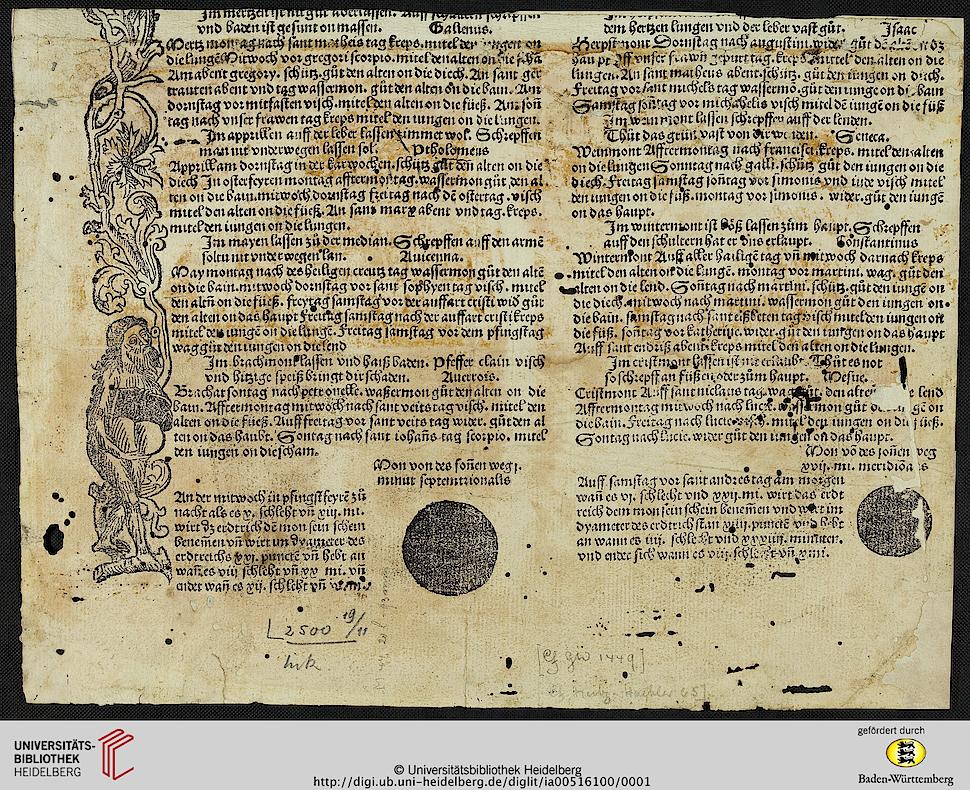 Im mertzen ist nit gůt aderlassen. Auff schultern schrepffen
vnd baden ist gesunt on massen. Galienus.
Mertz montag nach sant matheis tag kreps. mitel den iungen on
die lungen Mitwoch vor gregori scorpio. mitel den alten on die scha
Am abent gregory. schütz. gůt den alten on die diech. An sant ger
trauten abent vnd tag wasserman. gůt den alten on die bain. Am
dornstag vor mitfasten visch. mitel den alten on die fůeß. Am son
tag nach vnser frawen tag kreps mitel den iungen on die lungen.
Im apprillen auff der leber lassen zimmet wol. Schrepffen
man nit vnderwegen lassen sol. Ptholomeus
Apprill am dornstag in der karwochen. schütz gůt den alten on die
diech In osterfeyren montag afftermontag. wasserman gůt den al
ten on die bain. mitwoch dornstag freitag nach dē ostertag. visch
mitel den alten on die fůeß. An sant marx abent vnd tag. kreps.
mitel den iungen on die lungen.
Im mayen lassen zů der median. Schrepffen auff den armē
soltu nit vnderwegen lan. Auicenna.
May montag nach des heiligen creutz tag wasserman gůt den altē
on die bain. mitwoch dornstag vor sant sophyen tag visch. mitel
den altē on die fůeß. freytag samstag vor der auffart cristi wid gůt
den alten on das haupt Freitag samstag nach der auffart cristi kreps
mitel den iungē on die lungē. Freitag samstag vor dem pfingstag
wag gůt den iungen on die lend
Im brachmont lassen vnd haiß baden. Pfeffer clain visch
vnd hitzige speiß bringt dir schaden. Auerrois.
Brachat sontag nach petronelle. wasserman gůt den alten on die
bain. Afftermontag mitwoch nach sant veits tag visch. mitel den
alten on die fůeß. Auff freitag vor sant veits tag wider. gůt den al
ten on das haubt. Sontag nach sant iohañs tag scorpio. mitel
den iungen on die scham.
Mon von des soñen weg
minut septentrionalis
An der mitwoch in pfingst feyrē zů
nacht als es x. schlecht vñ xij. mi.
wirt dz erdtrich dē mon sein schein
benemen vñ wirt im dyameter des
erdtreichs xvj. punctē vñ hebt an
wañ es viij schlecht vñ xx mi. vñ
endet wañ es xij. schlecht vñ
dem hertzen lungen vnd der leber vast gůt. Isaac
Herpstmont Dornstag nach augustini. wider gůt den alten on dz
haupt Off vnser frawen gepurt tag. kreps mittel den. alten on die
lungen. An sant matheus abent. schütz. gůt den iungen on diech.
Freitag vor sant michels tag wassermō. gůt den iungē on di bain
Samstag soñtag vor michahelis visch mitel dē iungē on die fůß
Im weinmont lassen schrepffen auff der lenden.
Thůt das grin vast von dir wenden. Seneca.
Weinmont Afftermontag nach francisci kreps. mitel den alten
on die lungen Sonntag nach galli. schütz gůt den iungen on die
diech. Freitag samstag soñtag vor simonis vnd iude visch mitel
den iungen on die fůß. montag vor simonis. wider. gůt den iungē
on das haupt.
Im wintermont ist böß lassen zum haupt. Schrepffen
auff den schultern hat er vns erlaupt. Constantinus
Wintermont Auff aller hailigē tag vñ mitwoch darnach kreps
mitel den alten on die lungē. montag vor martini. wag. gůt den
alten on die lend. Sontag nach martini. schütz. gůt den iungē on
die diech. mitwoch nach martini. wasserman gůt den iungen on
die bain. samstag nach sant elßbeten tag visch mitel den iungen on
die fůß. soñtag vor katherine. wider. gůt den iungen on das haupt
Auff sant endriß abent kreps mitel den alten on die lungen.
Im cristmont lassen ist nit erlaubt. Thůt es not
so schrepff an fůßen oder zům haupt. Mesue.
Cristmont Auff sant niclaus tag. wag gůt den alten lend
Afftermontag mitwoch nach lucie. wasserman gůt den iungē on
die bain. Freitag nach lucie. visch. mitel den iungen on die fůeß.
Sontag nach lucie. wider gůt den iungen on das haupt.
Mon vō des soñen weg
xvij. mi. meridiōa
Auff samstag vor sant andres tag am morgen
wañ es vj. schlecht vnd xxij. mi. wirt das erdt
reich dem mon sein schein benemen vnd wirt im
dyameter des erdtreichs an xiij. punctē vnd hebt
an wann es iiij. schlecht vnd xxxiiij. minuten.
vnd endet sich wann es viij. schlecht vñ x mi.
2500 19/11
[Cf GW 1449]
UNIVERSITÄTS-
BIBLIOTHEK
HEIDELBERG
© Universitätsbibliothek Heidelberg
http://digi.ub.uni-heidelberg.de/diglit/ia00516100/0001
gefördert durch
Baden-Württemberg